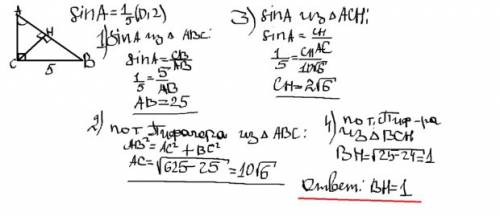 A
H
C
5
B
sinA = 1/5 (0,2)
1) sinA из △ ABC:
sinA = CB/AB
1/5 = 5/AB
AB = 25
2) по т. Пифагора из △ ABC:
AB² = AC² + BC²
AC = √625-25 = 10√6
3) sinA из △ACH:
sinA = CH/AC
1/5 = CH/10√6
CH = 2√6
4) по т. Пиф-ра
из △ BCH
BH = √25-24 = 1
Ответ: BH = 1